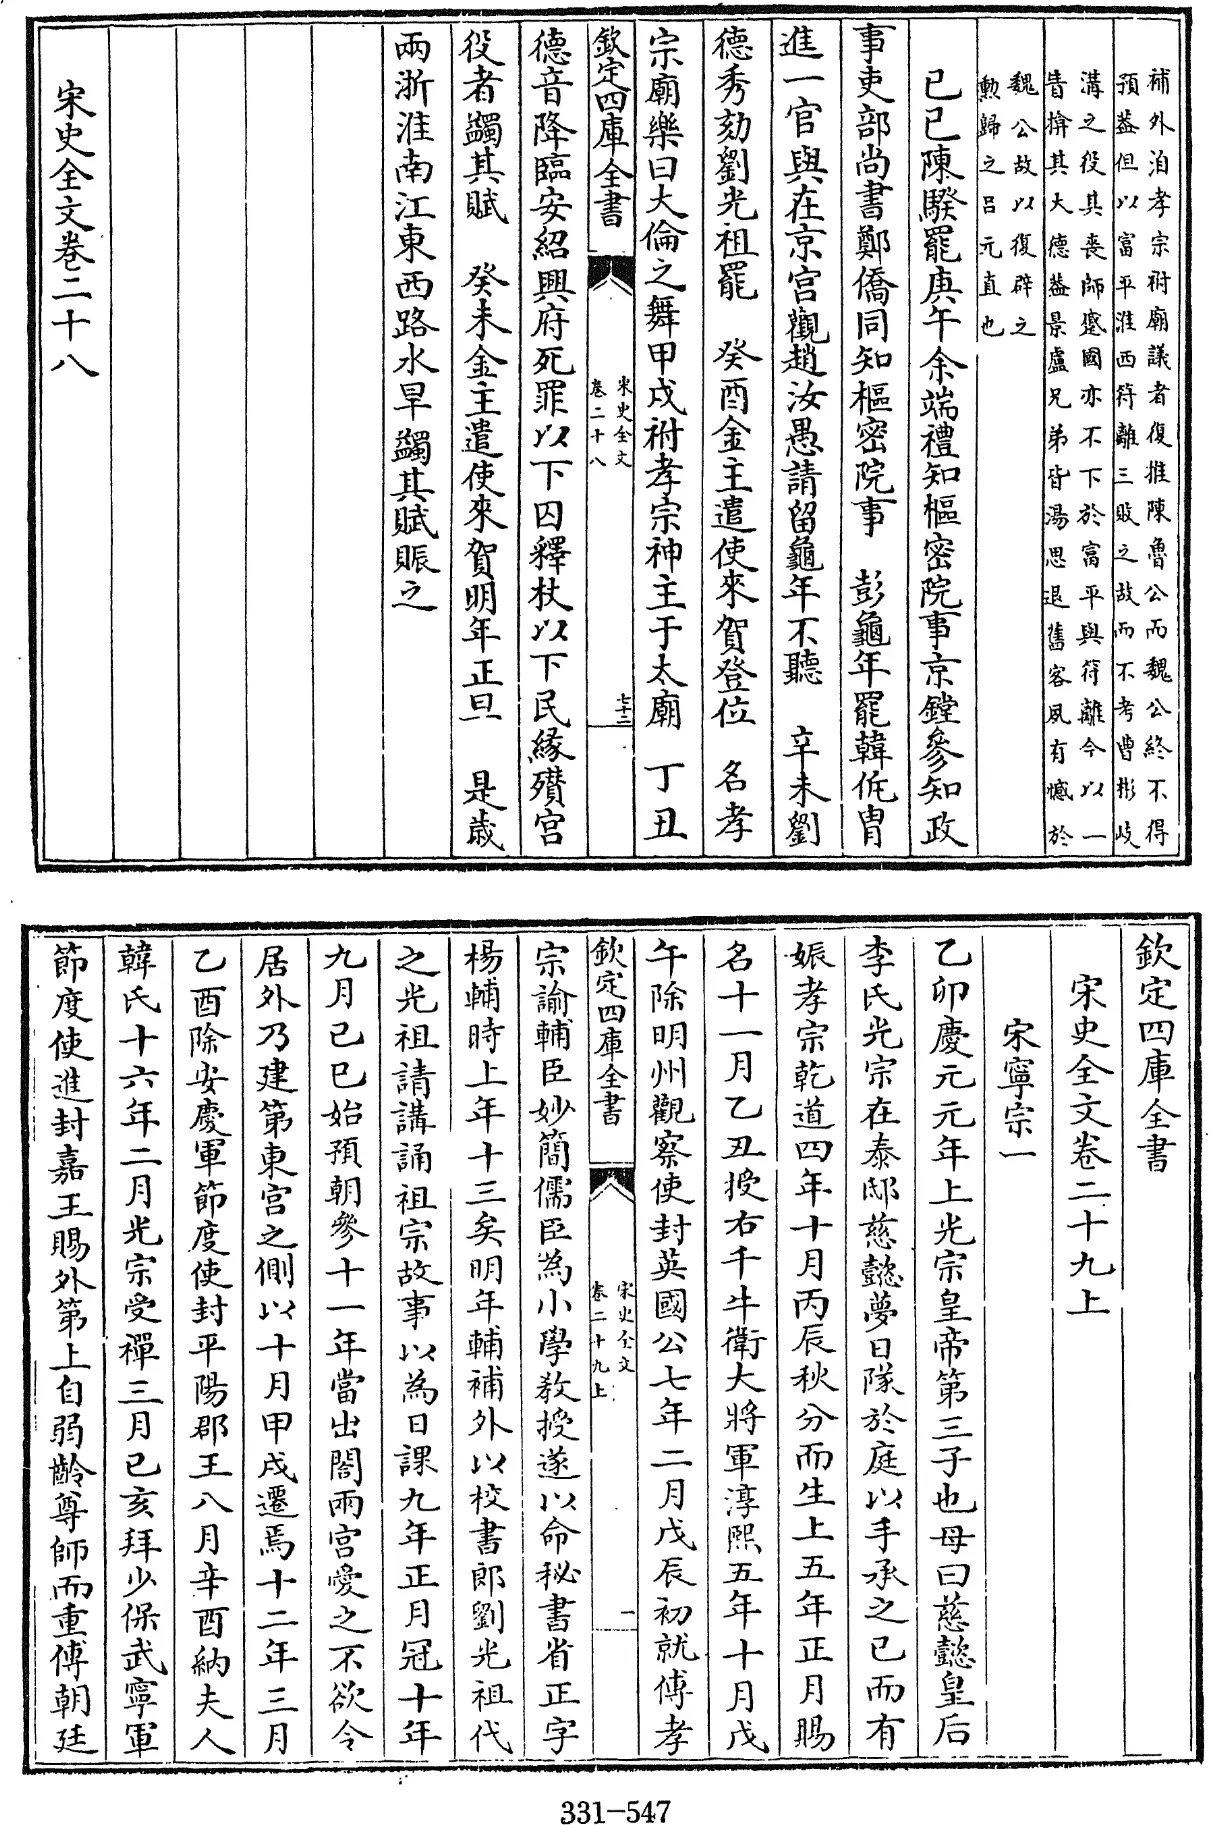 補外洎孝宗祔廟議者復推陳魯公而魏公終不得
預葢但以富平淮西符離三敗之故而不考曹彬岐
溝之役其喪師蹙國亦不下於富平與符離今以一
眚揜其大德葢景盧兄弟皆湯思退舊客夙有憾於
魏公故以復辟之
勲歸之呂元直也
己巳陳騤罷庚午余端禮知樞密院事京鏜參知政
事吏部尚書鄭僑同知樞密院事　彭龜年罷韓侂胄
進一官與在京宮觀趙汝愚請留龜年不聽　辛未劉
德秀劾劉光祖罷　癸酉金主遣使來賀登位　名孝
宗廟樂曰大倫之舞甲戌祔孝宗神主于太廟　丁丑
欽定四庫全書
宋史全文
卷二十八
七十三
德音降臨安紹興府死罪以下囚釋杖以下民緣殯宮
役者蠲其賦　癸未金主遣使來賀明年正旦　是歲
兩浙淮南江東西路水旱蠲其賦賑之
宋史全文卷二十八
欽定四庫全書
宋史全文卷二十九上
宋寧宗一
乙卯慶元元年上光宗皇帝第三子也母曰慈懿皇后
李氏光宗在泰邸慈懿夢日隊於庭以手承之已而有
娠孝宗乾道四年十月丙辰秋分而生上五年正月賜
名十一月乙丑授右千牛衛大將軍淳熙五年十月戊
午除明州觀察使封英國公七年二月戊辰初就傅孝
欽定四庫全書
宋史全文
卷二十九上
一
宗諭輔臣妙簡儒臣為小學教授遂以命秘書省正字
楊輔時上年十三矣明年輔補外以校書郎劉光祖代
之光祖請講誦祖宗故事以為日課九年正月冠十年
九月己巳始預朝參十一年當出閤兩宮愛之不欲令
居外乃建第東宮之側以十月甲戌遷焉十二年三月
乙酉除安慶軍節度使封平陽郡王八月辛酉納夫人
韓氏十六年二月光宗受禪三月己亥拜少保武寧軍
節度使進封嘉王賜外第上自弱齡尊師而重傅朝廷
331-547